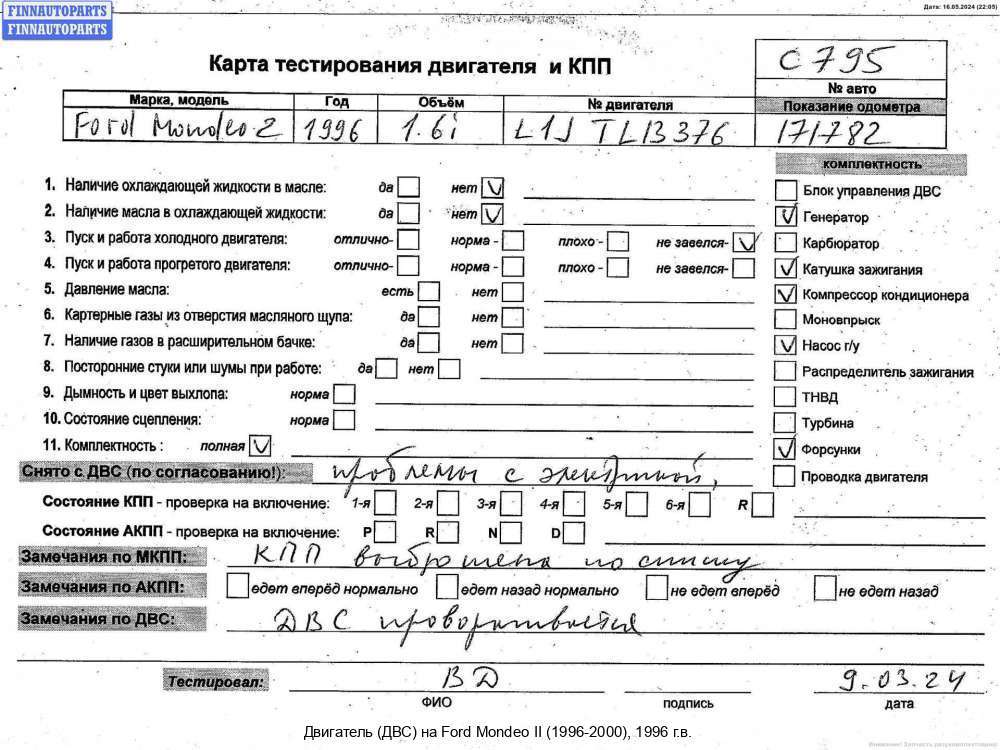 FINNAUTOPARTS
FINNAUTOPARTS
Дата: 16.05.2024 (22:05)
Карта тестирования двигателя и КПП
C795
№ авто
Марка, модель Год Объём № двигателя Показание одометра
Ford Mondeo 2 1996 1.6i L1J TL13376 171782
комплектность
1. Наличие охлаждающей жидкости в масле: да нет V Блок управления ДВС
2. Наличие масла в охлаждающей жидкости: да нет V V Генератор
3. Пуск и работа холодного двигателя: отлично- норма - плохо - не завелся- V Карбюратор
4. Пуск и работа прогретого двигателя: отлично- норма - плохо - не завелся- V Катушка зажигания
5. Давление масла: есть нет V Компрессор кондиционера
6. Картерные газы из отверстия масляного щупа: да нет Моновпрыск
7. Наличие газов в расширительном бачке: да нет V Насос г/у
8. Посторонние стуки или шумы при работе: да нет Распределитель зажигания
9. Дымность и цвет выхлопа: норма ТНВД
10. Состояние сцепления: норма Турбина
11. Комплектность : полная V V Форсунки
Снято с ДВС (по согласованию!): проблемы с электрикой, Проводка двигателя
Состояние КПП - проверка на включение: 1-я 2-я 3-я 4-я 5-я 6-я R
Состояние АКПП - проверка на включение: P R N D
Замечания по МКПП: КПП выброшена по списку
Замечания по АКПП: едет вперёд нормально едет назад нормально не едет вперёд не едет назад
Замечания по ДВС: ДВС проворачивается
Тестировал: ВД 9.03.24
ФИО подпись дата
Двигатель (ДВС) на Ford Mondeo II (1996-2000), 1996 г.в.